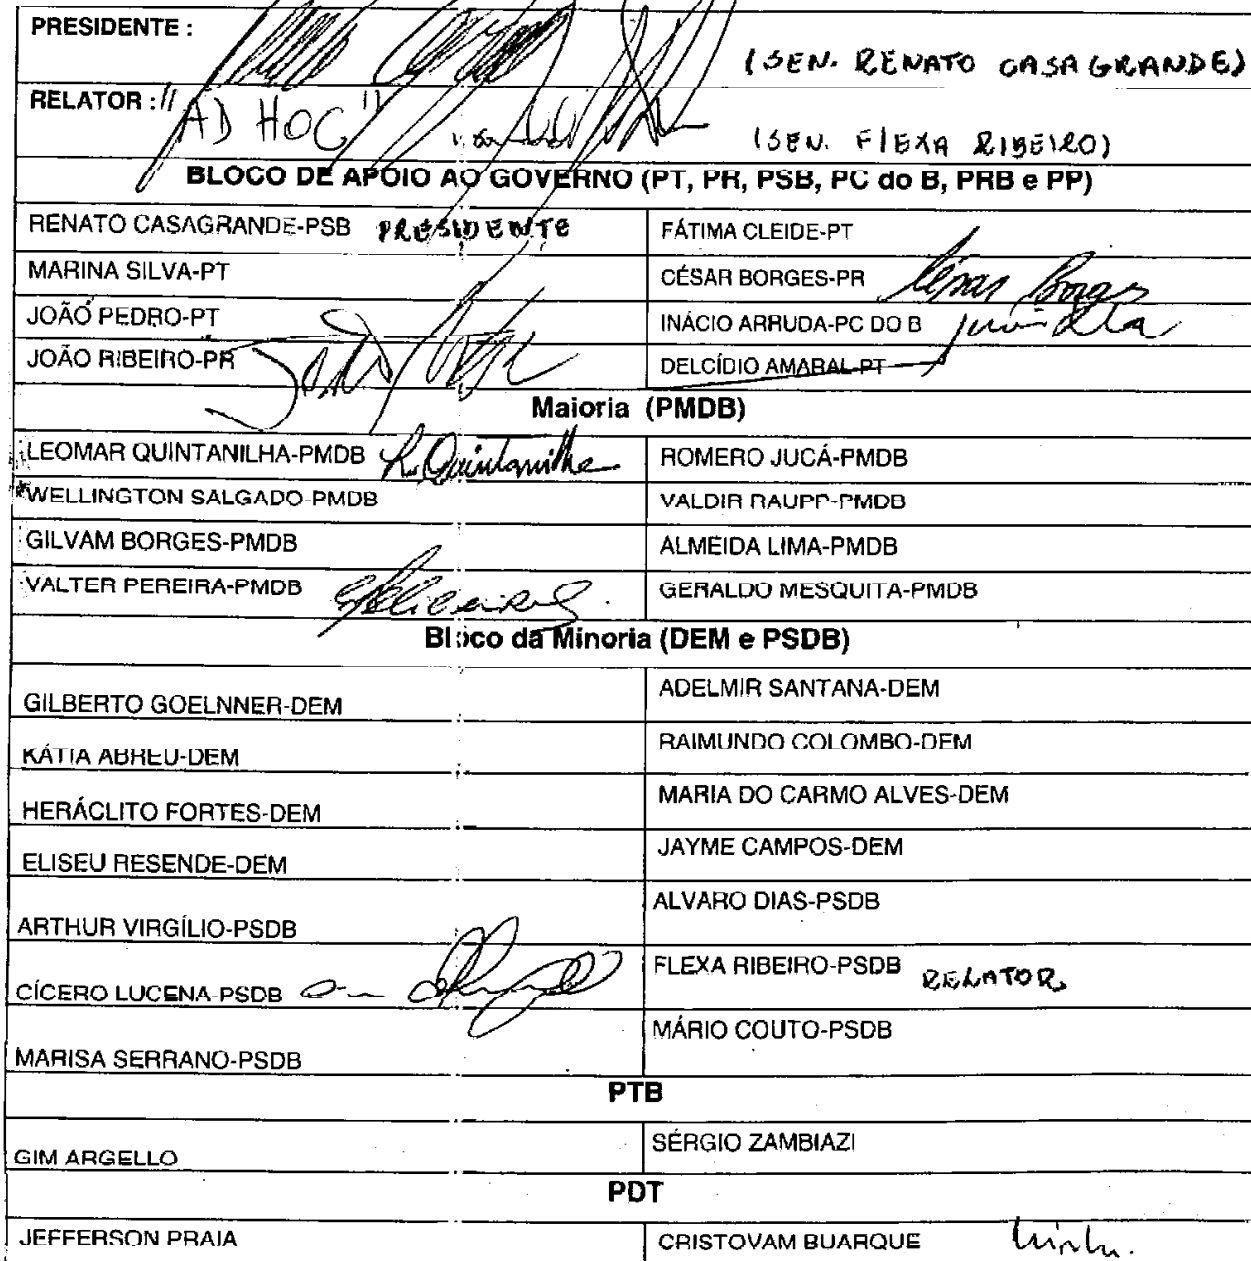 PRESIDENTE :
(SEN. RENATO CASAGRANDE)
RELATOR : "AD HOC"
(SEN. FLEXA RIBEIRO)
BLOCO DE APOIO AO GOVERNO (PT, PR, PSB, PC do B, PRB e PP)
RENATO CASAGRANDE-PSB PRESIDENTE
FÁTIMA CLEIDE-PT
MARINA SILVA-PT
CÉSAR BORGES-PR César Borges
JOÃO PEDRO-PT
INÁCIO ARRUDA-PC DO B
JOÃO RIBEIRO-PR
DELCÍDIO AMARAL-PT
Maioria (PMDB)
LEOMAR QUINTANILHA-PMDB L. Quintanilha
ROMERO JUCÁ-PMDB
WELLINGTON SALGADO-PMDB
VALDIR RAUPP-PMDB
GILVAM BORGES-PMDB
ALMEIDA LIMA-PMDB
VALTER PEREIRA-PMDB
GERALDO MESQUITA-PMDB
Bloco da Minoria (DEM e PSDB)
GILBERTO GOELNNER-DEM
ADELMIR SANTANA-DEM
KÁTIA ABREU-DEM
RAIMUNDO COLOMBO-DEM
HERÁCLITO FORTES-DEM
MARIA DO CARMO ALVES-DEM
ELISEU RESENDE-DEM
JAYME CAMPOS-DEM
ARTHUR VIRGÍLIO-PSDB
ALVARO DIAS-PSDB
CÍCERO LUCENA-PSDB
FLEXA RIBEIRO-PSDB RELATOR
MARISA SERRANO-PSDB
MÁRIO COUTO-PSDB
PTB
GIM ARGELLO
SÉRGIO ZAMBIAZI
PDT
JEFFERSON PRAIA
CRISTOVAM BUARQUE